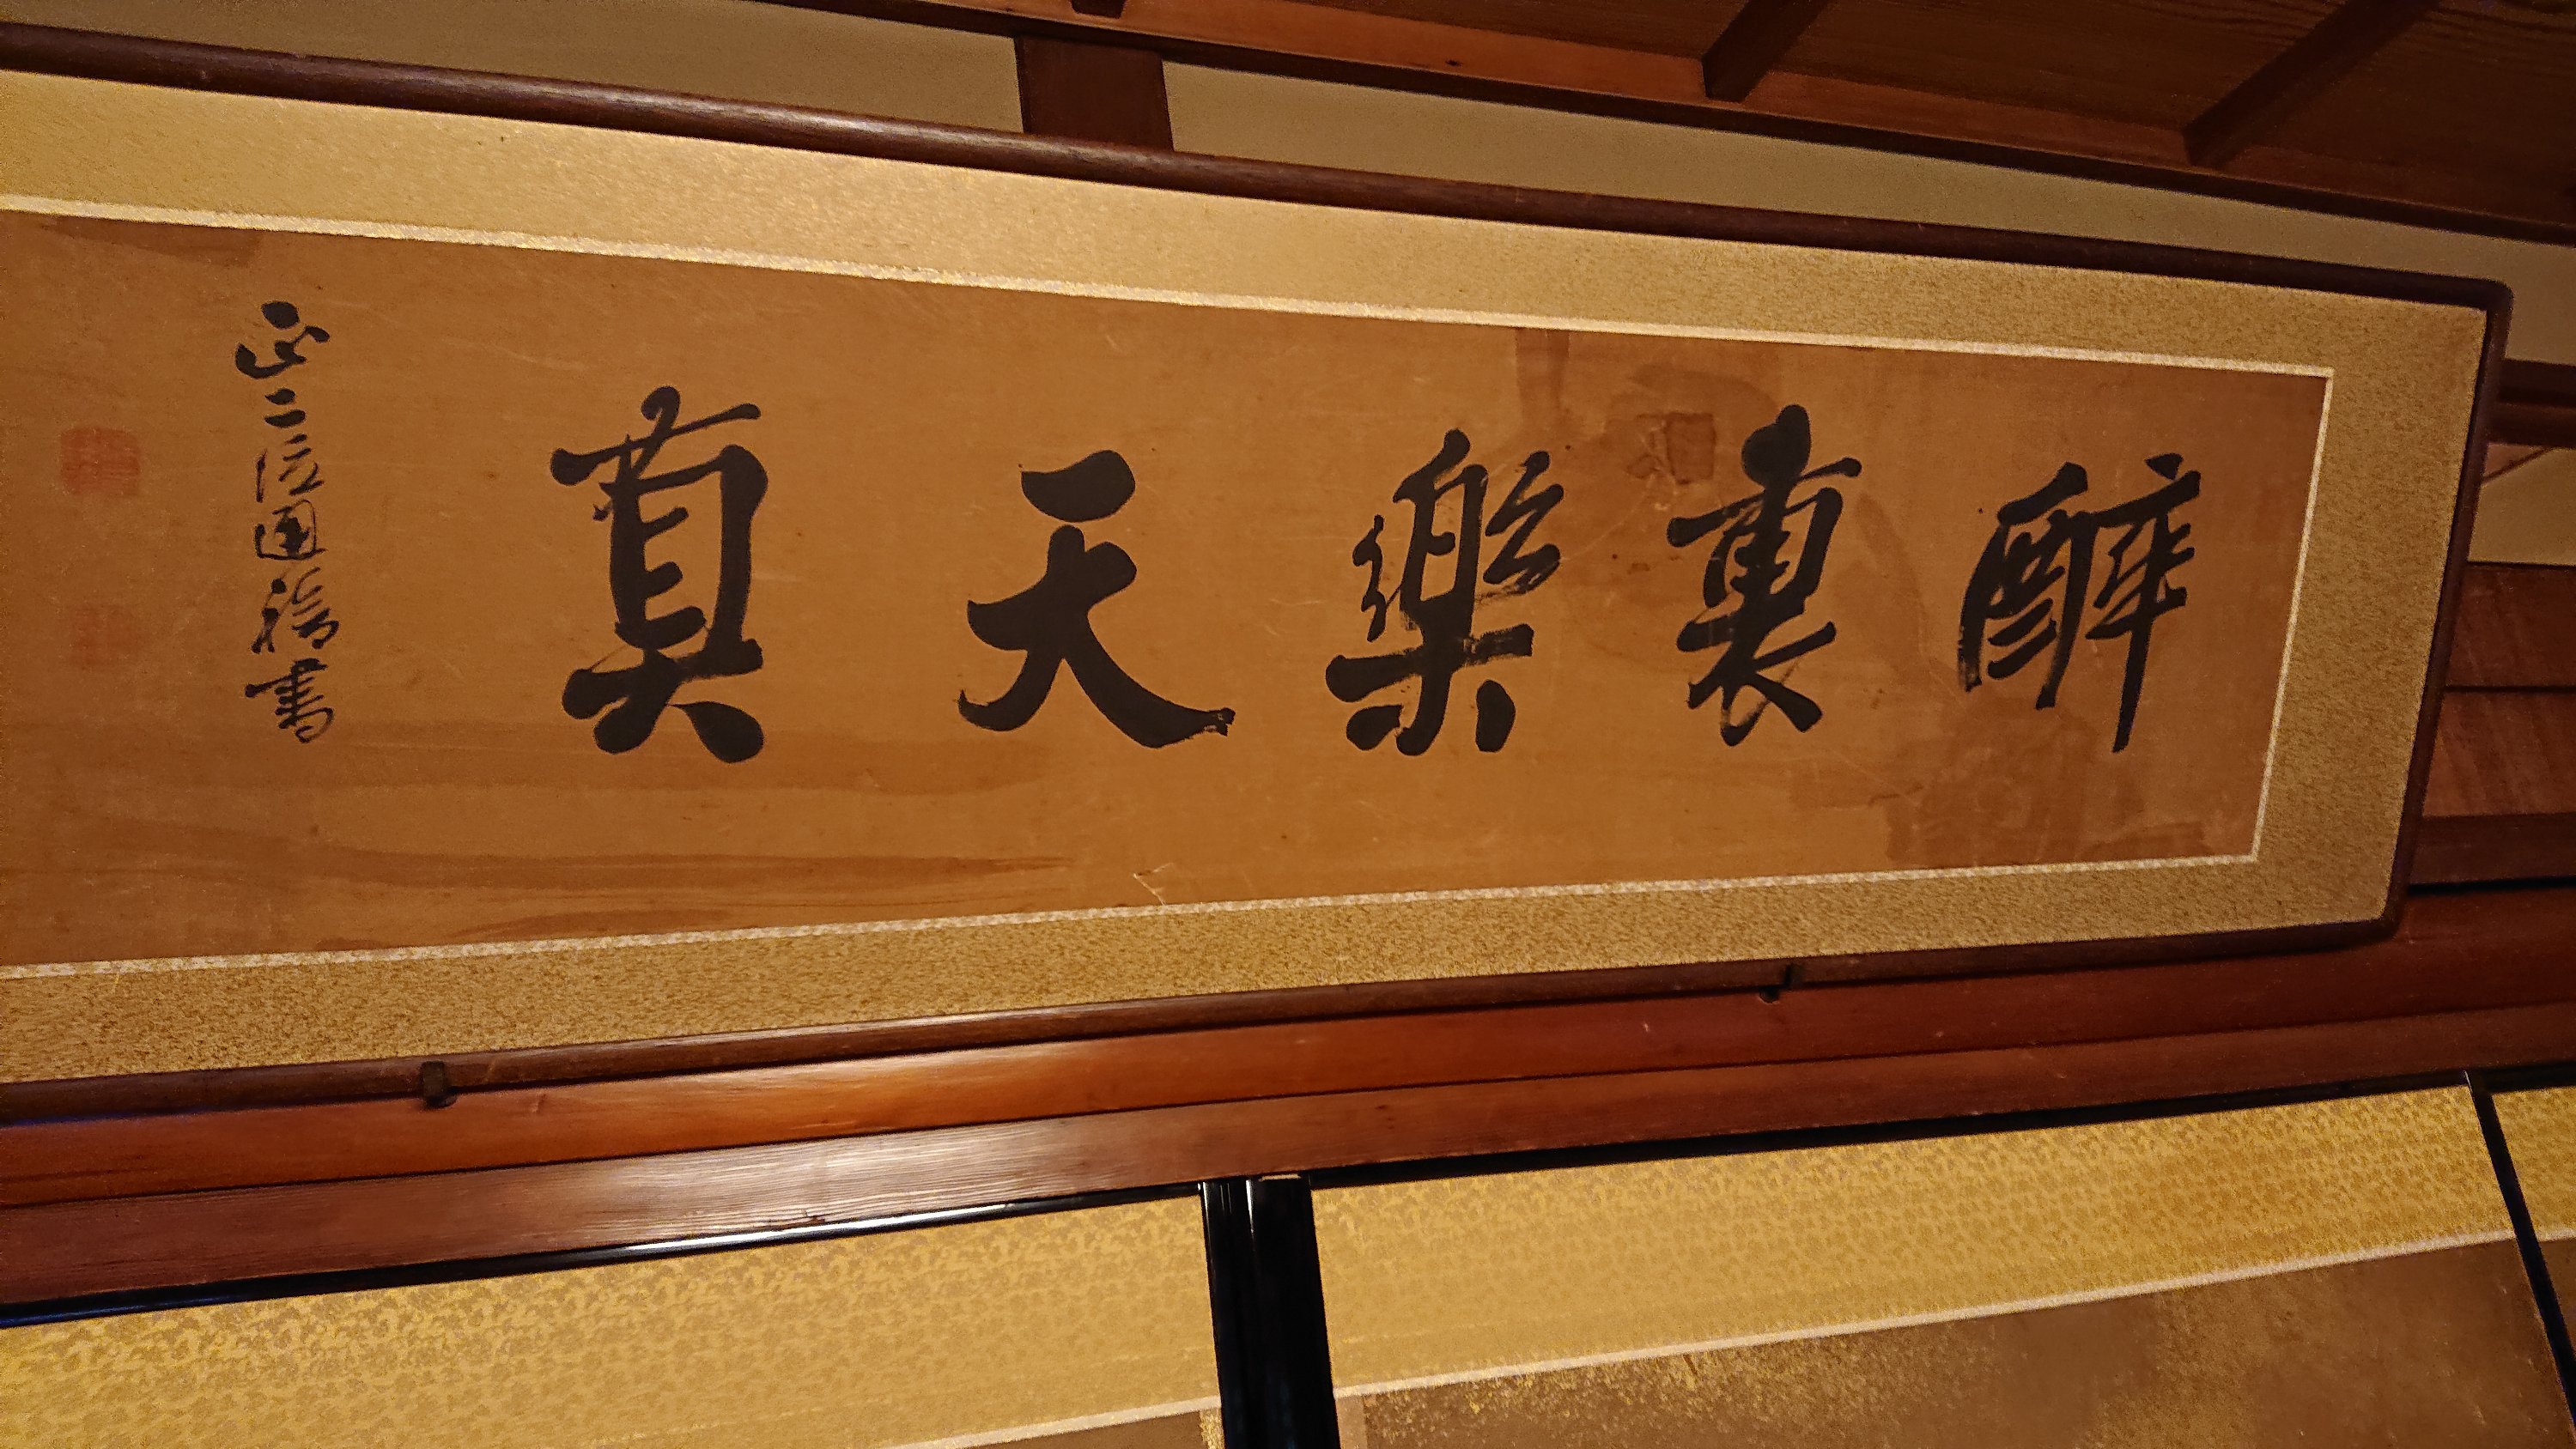 醉裏樂天真
正二位通禧書